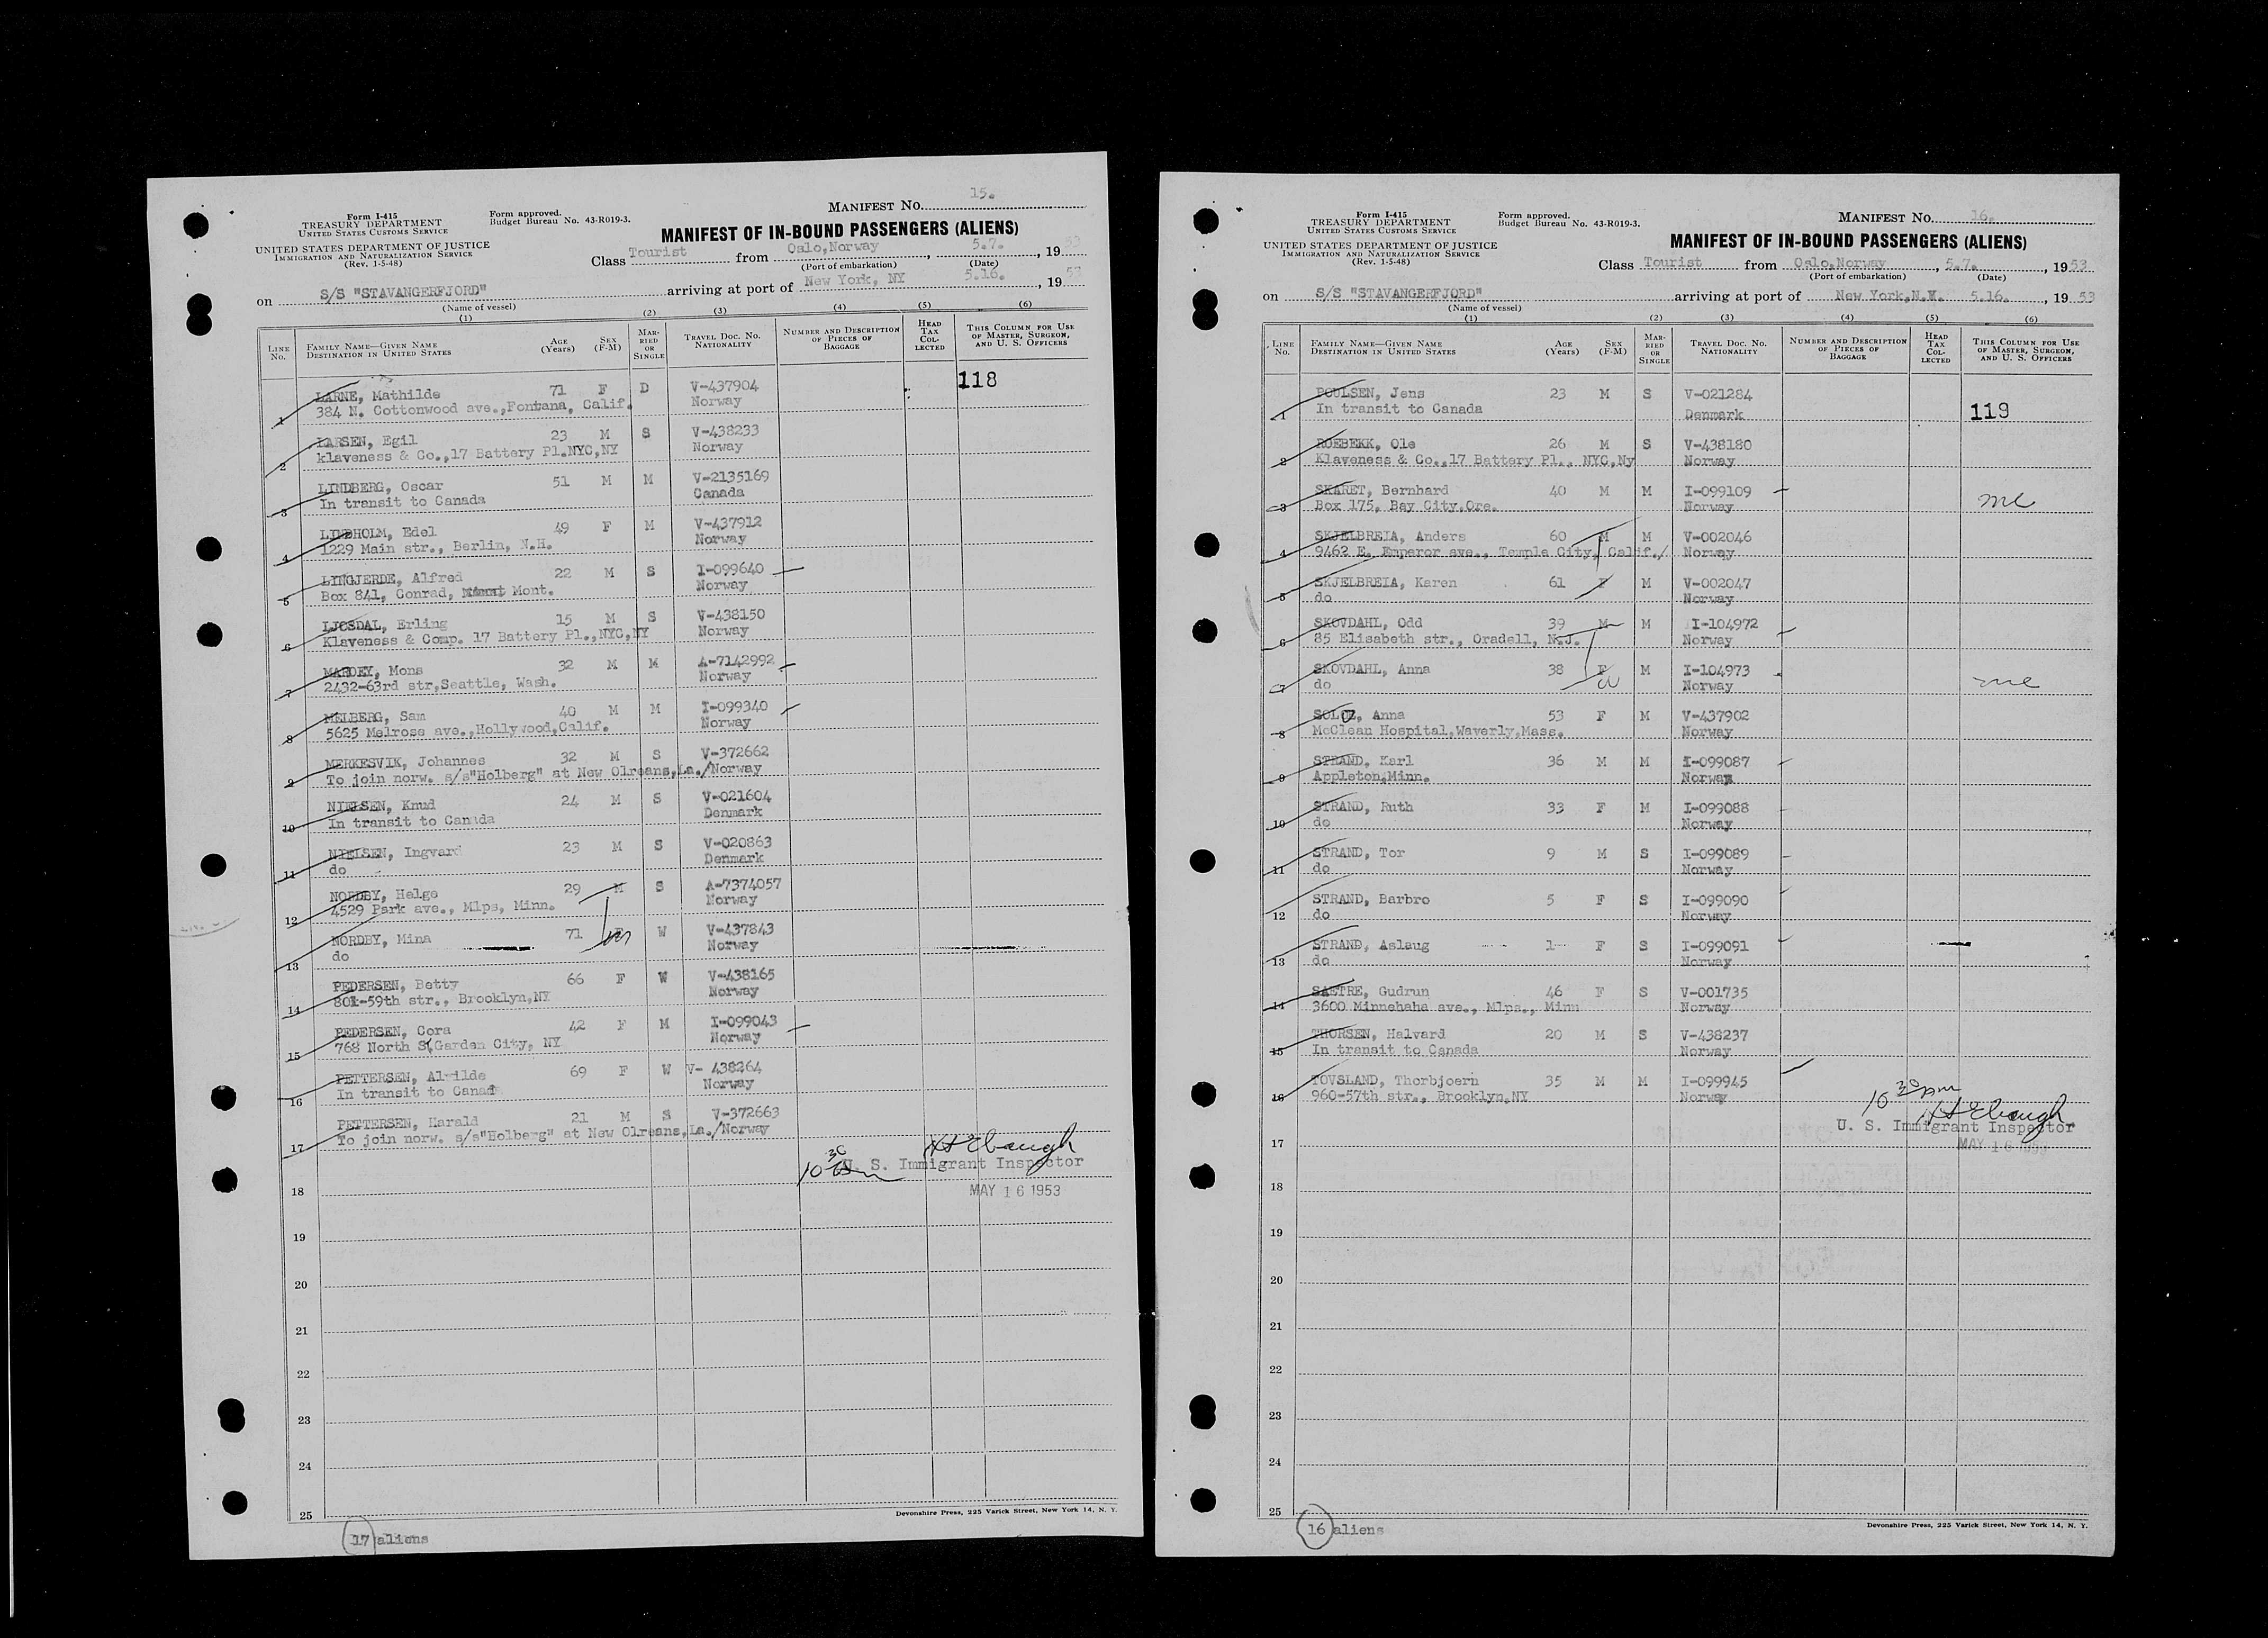 MANIFEST NO. 15.
Form I-415
TREASURY DEPARTMENT
UNITED STATES CUSTOMS SERVICE
Form approved.
Budget Bureau No. 43-R019-3.
UNITED STATES DEPARTMENT OF JUSTICE
IMMIGRATION AND NATURALIZATION SERVICE
(Rev. 1-5-48)
MANIFEST OF IN-BOUND PASSENGERS (ALIENS)
Class Tourist from Oslo,Norway , 5.7. , 1953
(Port of embarkation) (Date)
on S/S "STAVANGERFJORD" arriving at port of New York, NY 5.16. , 1953
(Name of vessel)
(1) (2) (3) (4) (5) (6)
LINE No. FAMILY NAME—GIVEN NAME DESTINATION IN UNITED STATES AGE (Years) SEX (F-M) MARRIED OR SINGLE TRAVEL DOC. NO. NATIONALITY NUMBER AND DESCRIPTION OF PIECES OF BAGGAGE HEAD TAX COLLECTED THIS COLUMN FOR USE OF MASTER, SURGEON, AND U. S. OFFICERS
1 LARNE, Mathilde 71 F D V-437904 118
384 N. Cottonwood ave.,Fontana, Calif. Norway
2 LARSEN, Egil 23 M S V-438233
klaveness & Co.,17 Battery Pl.NYC,NY Norway
3 LINDBERG, Oscar 51 M M V-2135169
In transit to Canada Canada
4 LINDHOLM, Edel 49 F M V-437912
1229 Main str., Berlin, N.H. Norway
5 LYNGJERDE, Alfred 22 M S I-099640
Box 841, Conrad, Mont. Norway
6 LJOSDAL, Erling 15 M S V-438150
Klaveness & Comp. 17 Battery Pl.,NYC,NY Norway
7 MAROEY, Mons 32 M M A-7142992
2432-63rd str,Seattle, Wash. Norway
8 MELBERG, Sam 40 M M I-099340
5625 Melrose ave.,Hollywood,Calif. Norway
9 MERKESVIK, Johannes 32 M S V-372662
To join norw. s/s"Holberg" at New Olreans,La./Norway
10 NIELSEN, Knud 24 M S V-021604
In transit to Canada Denmark
11 NIELSEN, Ingvard 23 M S V-020863
do Denmark
12 NORDBY, Helge 29 M S A-7374057
4529 Park ave., Mlps, Minn. Norway
13 NORDBY, Mina 71 F W V-437843
do Norway
14 PEDERSEN, Betty 66 F W V-438165
801-59th str., Brooklyn,NY Norway
15 PEDERSEN, Cora 42 F M I-099043
768 North St,Garden City, NY Norway
16 PETTERSEN, Alvilde 69 F W V- 438264
In transit to Canad Norway
17 PETTERSEN, Harald 21 M S V-372663
To join norw. s/s"Holberg" at New Olreans,La./Norway
10 30
U. S. Immigrant Inspector
18 MAY 16 1953
19
20
21
22
23
24
25
Devonshire Press, 225 Varick Street, New York 14, N. Y.
17 aliens
MANIFEST NO. 16.
Form I-415
TREASURY DEPARTMENT
UNITED STATES CUSTOMS SERVICE
Form approved.
Budget Bureau No. 43-R019-3.
UNITED STATES DEPARTMENT OF JUSTICE
IMMIGRATION AND NATURALIZATION SERVICE
(Rev. 1-5-48)
MANIFEST OF IN-BOUND PASSENGERS (ALIENS)
Class Tourist from Oslo,Norway , 5.7. , 1953
(Port of embarkation) (Date)
on S/S "STAVANGERFJORD" arriving at port of New York,N.Y. 5.16. , 1953
(Name of vessel)
(1) (2) (3) (4) (5) (6)
LINE No. FAMILY NAME—GIVEN NAME DESTINATION IN UNITED STATES AGE (Years) SEX (F-M) MARRIED OR SINGLE TRAVEL DOC. NO. NATIONALITY NUMBER AND DESCRIPTION OF PIECES OF BAGGAGE HEAD TAX COLLECTED THIS COLUMN FOR USE OF MASTER, SURGEON, AND U. S. OFFICERS
1 POULSEN, Jens 23 M S V-021284
In transit to Canada Denmark 119
2 ROEBEKK, Ole 26 M S V-438180
Klaveness & Co.,17 Battery Pl., NYC,Ny Norway
3 SKARET, Bernhard 40 M M I-099109
Box 175, Bay City,Ore. Norway
4 SKJELBREIA, Anders 60 M M V-002046
9462 E. Emperor ave., Temple City, Calif./ Norway
5 SKJELBREIA, Karen 61 F M V-002047
do Norway
6 SKOVDAHL, Odd 39 M M I-104972
85 Elisabeth str., Oradell, N.J. Norway
7 SKOVDAHL, Anna 38 F M I-104973
do Norway
8 Anna 53 F M V-437902
McClean Hospital,Waverly,Mass. Norway
9 STRAND, Karl 36 M M I-099087
Appleton,Minn. Norway
10 STRAND, Ruth 33 F M I-099088
do Norway
11 STRAND, Tor 9 M S I-099089
do Norway
12 STRAND, Barbro 5 F S I-099090
do Norway
13 STRAND, Aslaug 1 F S I-099091
do Norway
14 SAETRE, Gudrun 46 F S V-001735
3600 Minnehaha ave., Mlps., Minn Norway
15 THORSEN, Halvard 20 M S V-438237
In transit to Canada Norway
16 TOVSLAND, Thorbjoern 35 M M I-099945
960-57th str., Brooklyn,NY Norway
10 30 pm
U. S. Immigrant Inspector
17 MAY 16 1953
18
19
20
21
22
23
24
25
Devonshire Press, 225 Varick Street, New York 14, N. Y.
16 aliens